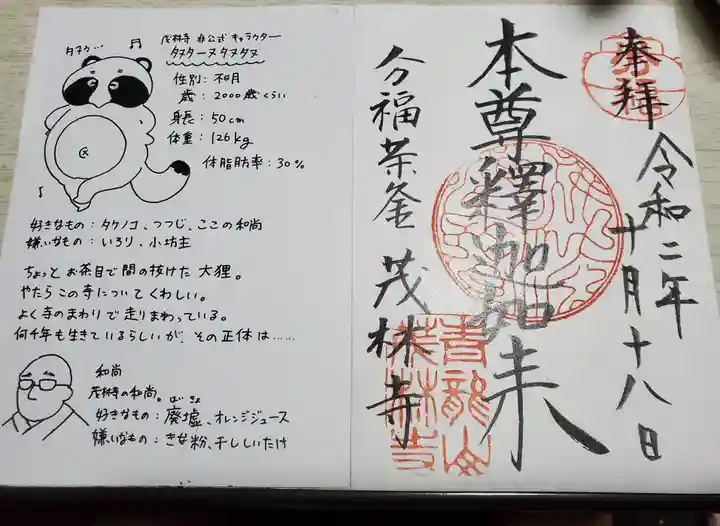 タヌタ…
茂林寺 非公式キャラクター
タヌターヌ タヌタヌ
性別：不明
歳：2000歳くらい
身長：50cm
体重：126kg
体脂肪率：30%
好きなもの：タケノコ、つつじ、ここの和尚
嫌いなもの：いろり、小坊主
ちょっとお茶目で間の抜けた大狸。
やたらこの寺についてくわしい。
よく寺のまわりで走りまわっている。
何千年も生きているらしいが、その正体は……
和尚
茂林寺の和尚。
はいきょ
好きなもの：廃墟、オレンジジュース
嫌いなもの：きな粉、干ししいたけ
奉拝
令和二年
十月十八日
本尊釋迦如来
分福茶釜 茂林寺
青龍山
茂林寺